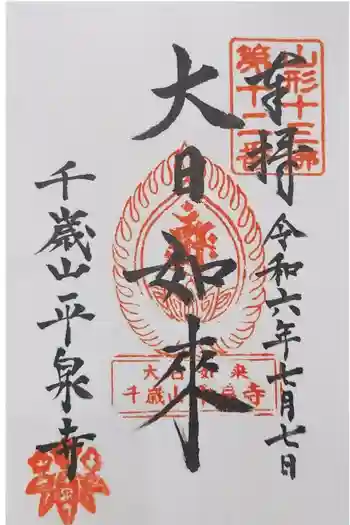 奉拝
山形十三佛
第十二番
令和六年七月七日
大日如来
大日如来
千歳山平泉寺
千歳山平泉寺